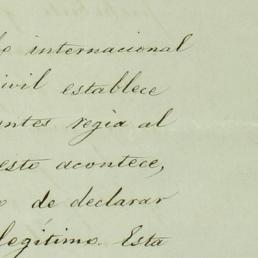 internacional
ivil establece
antes regia al
esto acontece,
de declarar
legítimo. Esta